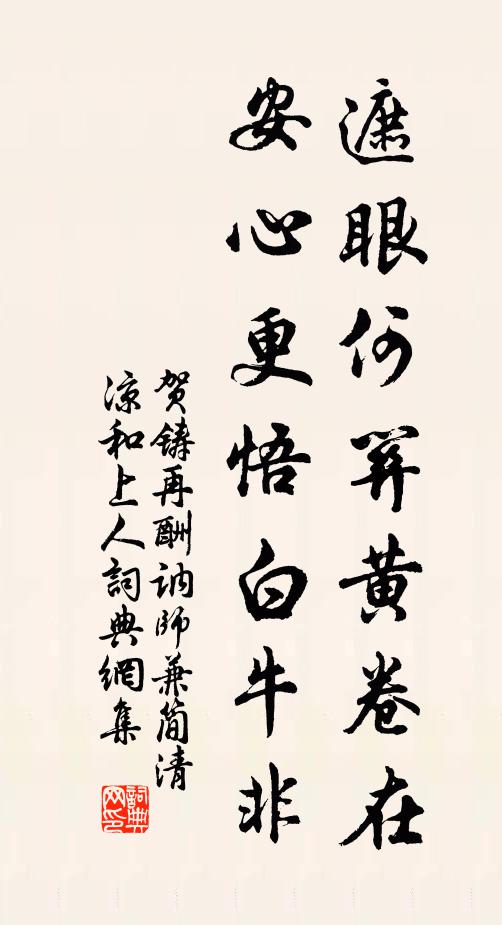 遮眼何关黄卷在
安心更悟白牛非
贺铸再酬讷师兼简清
凉和上人词典網集
詞典
网印